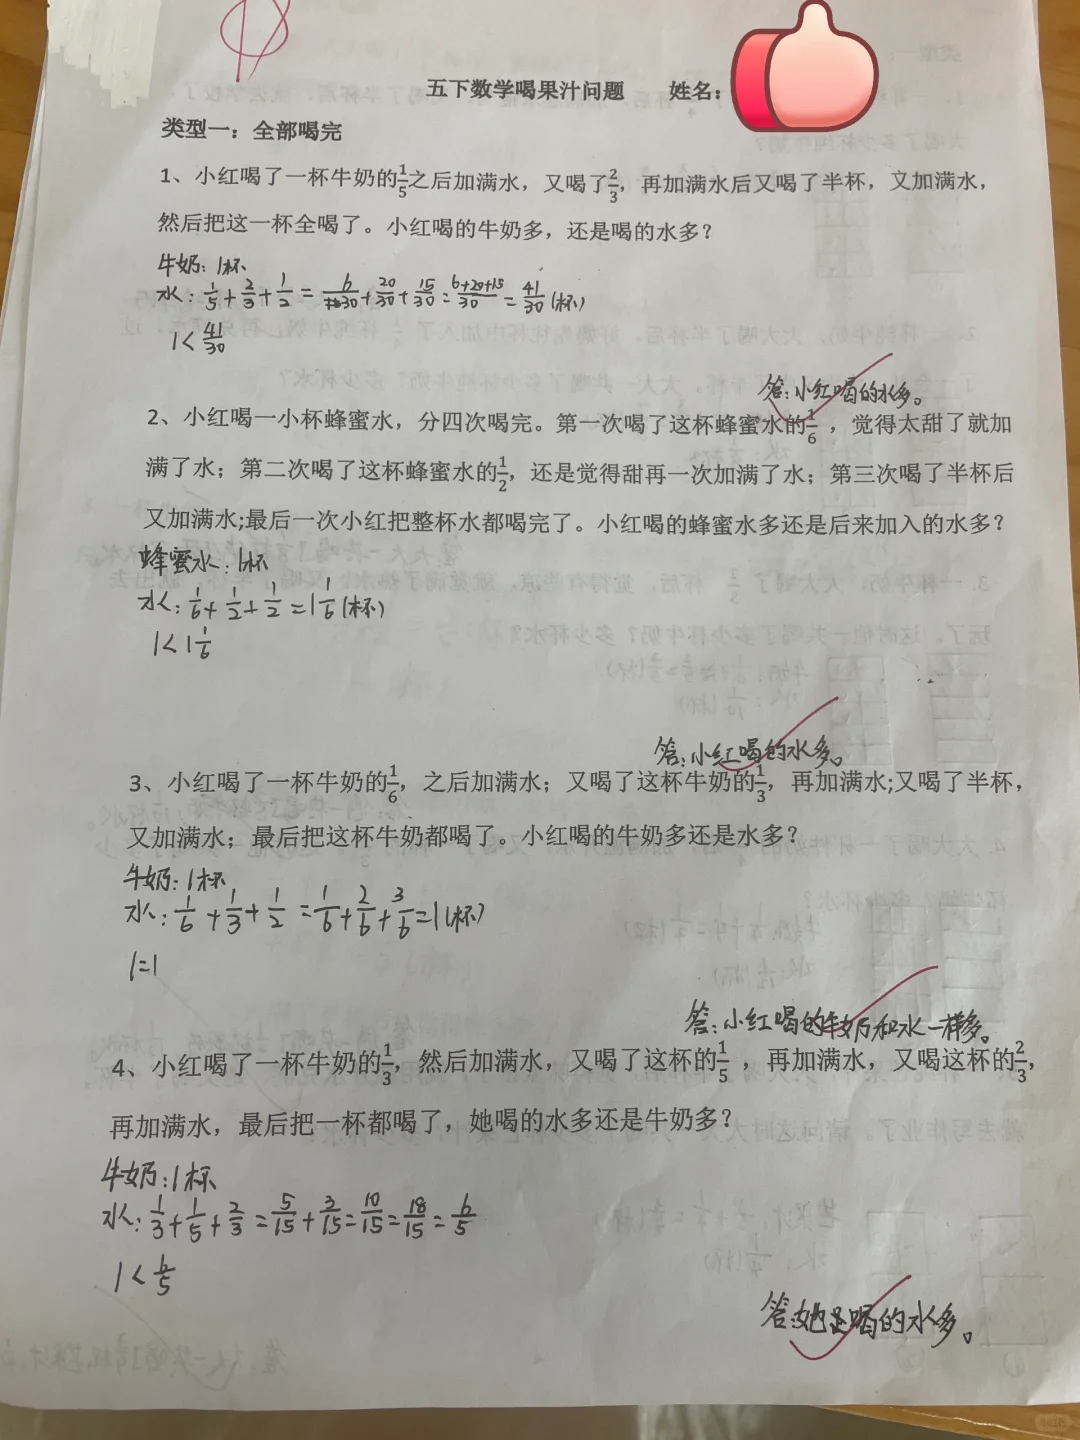 五下数学喝果汁问题 姓名：
类型一：全部喝完
1、小红喝了一杯牛奶的1/5之后加满水，又喝了2/3，再加满水后又喝了半杯，又加满水，
然后把这一杯全喝了。小红喝的牛奶多，还是喝的水多？
牛奶：1杯
水：1/5+2/3+1/2=6/30+20/30+15/30=6+20+15/30=41/30(杯)
1<41/30
答：小红喝的水多。
2、小红喝一小杯蜂蜜水，分四次喝完。第一次喝了这杯蜂蜜水的1/6，觉得太甜了就加
满了水；第二次喝了这杯蜂蜜水的1/2，还是觉得甜再一次加满了水；第三次喝了半杯后
又加满水;最后一次小红把整杯水都喝完了。小红喝的蜂蜜水多还是后来加入的水多？
蜂蜜水：1杯
水：1/6+1/2+1/2=1 1/6(杯)
1<1 1/6
答：小红喝的水多。
3、小红喝了一杯牛奶的1/6，之后加满水；又喝了这杯牛奶的1/3，再加满水;又喝了半杯，
又加满水；最后把这杯牛奶都喝了。小红喝的牛奶多还是水多？
牛奶：1杯
水：1/6+1/3+1/2=1/6+2/6+3/6=1(杯)
1=1
答：小红喝的牛奶和水一样多。
4、小红喝了一杯牛奶的1/3，然后加满水，又喝了这杯的1/5，再加满水，又喝这杯的2/3，
再加满水，最后把一杯都喝了，她喝的水多还是牛奶多？
牛奶：1杯
水：1/3+1/5+2/3=5/15+3/15=10/15=18/15=6/5
1<6/5
答：她喝的水多。